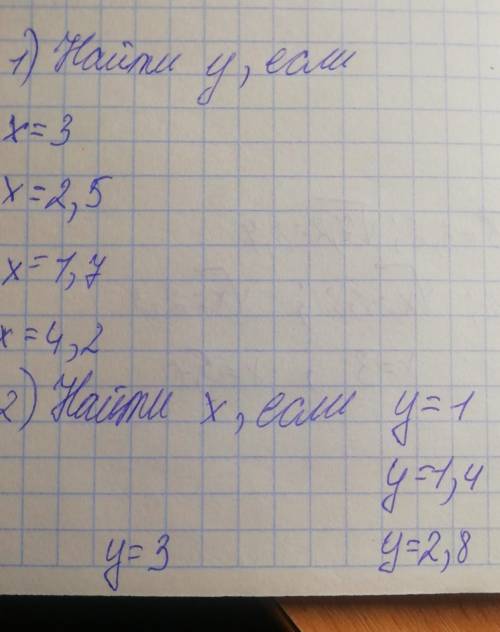 1) Найти y, если
x=3
x=2,5
x=1,7
x=4,2
2) Найти x, если y=1
y=1,4
y=3 y=2,8